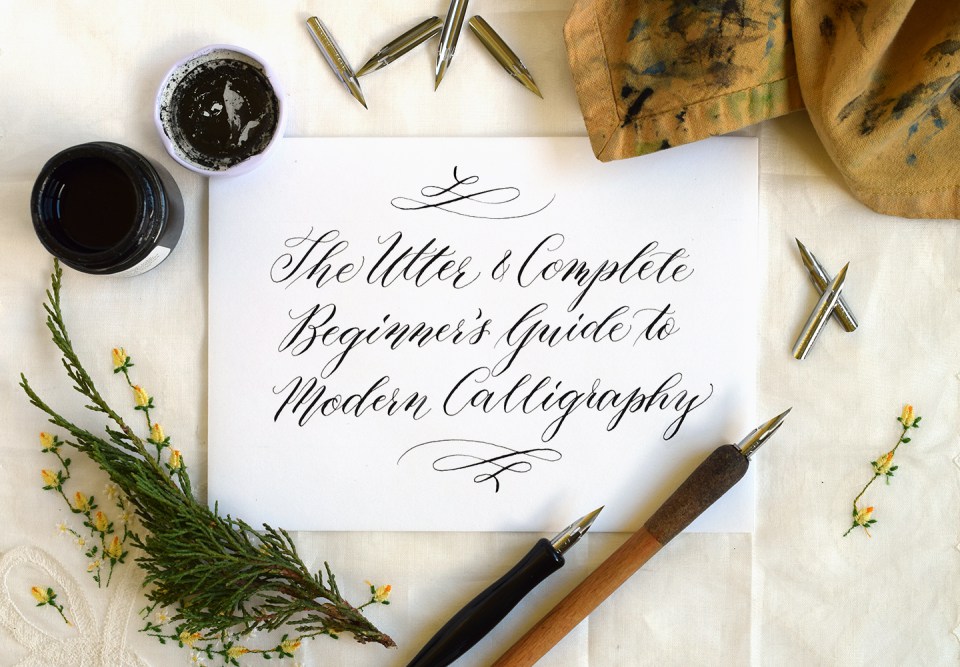 The Utter & Complete
Beginner's Guide to
Modern Calligraphy